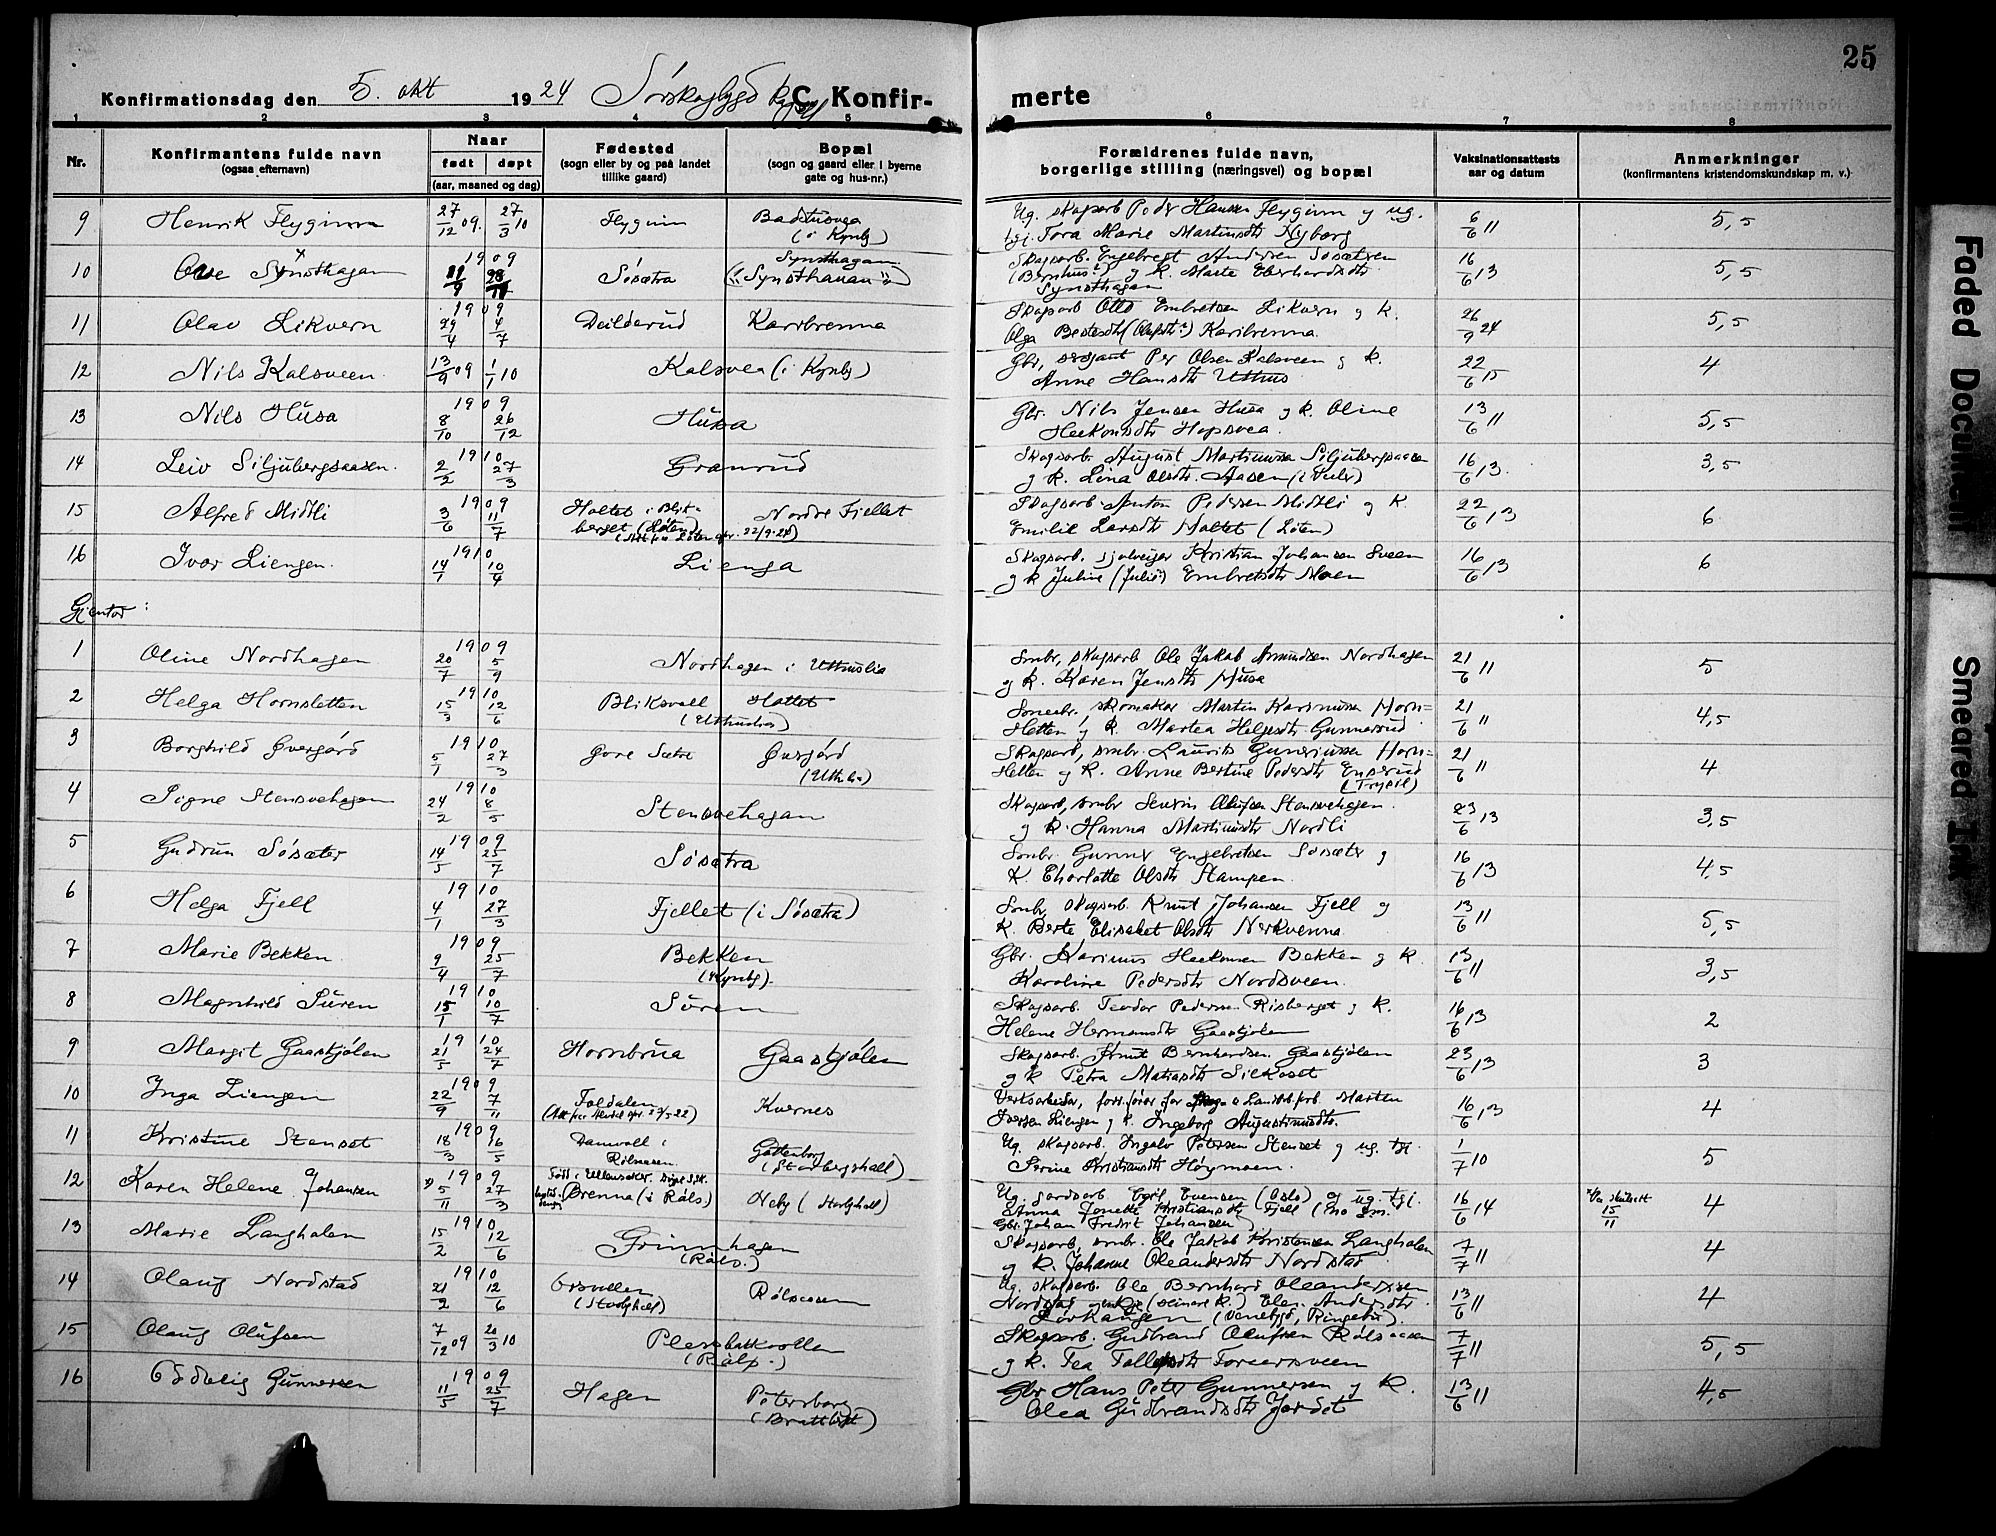 25
Konfirmationsdag den 5. okt 1924 Sørskogbygd C. Konfir-
merte
1 2 3 4 5 6 7 8
Nr.
Konfirmantens fulde navn
(ogsaa efternavn)
Naar
født | døpt
(aar, maaned og dag)
Fødested
(sogn eller by og paa landet
tillike gaard)
Bopæl
(sogn og gaard eller i byerne
gate og hus-nr.)
Forældrenes fulde navn,
borgerlige stilling (næringsvei) og bopæl
Vaksinationsattests
aar og datum
Anmerkninger
(konfirmantens kristendomskundskap m. v.)
9 Henrik Flyginn 27/12 09. 27/3 10 Flyginn Badstusvea
(i Kynb.)
Ug. skogsarb Peder Hansen Flyginn og ug.
tj. Tora Marie Martinsdtr Nyborg
6/6 11 5,5
10 Ove Synsthagen 1909 Søsætra Synsthagen
Skogsarb. Engebregt Andersen Søsætren
og k. Marte Eberhardsdtr
Synsthagen
16/6 13 5,5
11 Olav Likvern 1909 29/4 4/7 Deilderud Karibrenna
Skogsarb Otto Embretsen Likvern og k.
Olga Karibrenna
26/9 24 5,5
12 Nils Kalsveen 13/9 09 1/1 10 Kalsvea (i Kynb)
Gbr, sersjant Per Olsen Kalsveen og k.
Anne Hansdtr Uthus
22/6 15 4
13 Nils Husa 1909 8/10 26/12 Husa
Gbr. Nils Jensen Husa og k. Oline
Heekonsdtr Hopsvea.
13/6 11 5,5
14 Leiv Siljubergsaasen. 1910 2/2 27/3 Granrud
Skogsarb. August Martinussen Siljubergsaasen
og k. Lina Olsdtr. Aasen
16/6 13. 3,5
15 Alfred Midtli 1909 3/6 11/7 Holtet i Blik-
berget (Løten) Nordre Fjellet
Skogsarb. Anton Pedersen Midtli og k.
Emilie Larsdtr Holtet (Løten)
22/6 13 6
16 Ivar Liengen. 1910 14/1 10/4 Lienga
Skogsarb. sjølveiger Kristian Johansen Sveen
og k Juline (Julie) Embretsdtr Moen
16/6 13 6
Gjentor:
1 Oline Nordhagen 1909 20/7 5/9 Nordhagen i Uthuslia
Smbr, skogsarb Ole Jakob Amundsen Nordhagen
og k. Karen Jensdtr Husa
21/6 11 5
2 Helga Hornsletten 1910 15/3 12/6 Bliksvoll Holtet
(Uthuslia)
skomaker Martin Karinussen Horn=
sletten og k. Martea Helgesdtr Gunnerud
21/6 11 4,5
3 Borghild Øvergård 1910 5/1 27/3 Øvre Sætre Øvergård
(Uthuslia)
Skogsarb, smbr. Laurits Guneriussen Horn=
sletten og k. Anne Bertine Pedersdtr Enerud
(Trysil)
21/6 11 4
4 Signe Stensvehagen 1910 24/2 8/5 Stensvehagen
Skogsarb, smbr Severin Olufsen Stensvehagen.
og k. Hanna Martinusdtr Nordli
23/6 13 3,5
5 Gudrun Søsæter 1909 14/5 25/7 Søsætra
Smbr. Gunner Engebretsen Søsæter og
k. Charlotte Olsdtr Stampen.
16/6 13 4,5
6 Helga Fjell 1910 4/1 27/3 Fjellet (i Søsætra)
Smbr, skogsarb. Knut Johansen Fjell og
k. Berte Elisabet Olsdtr Nerkvenna
13/6 11 5,5
7 Marie Bekken. 1909 9/4 25/7 Bekken
(Kynb).
Gbr. Karinus Heekonsen Bekken og k.
Karoline Pedersdtr Nordsveen.
13/6 11 3,5
8 Magnhild Suren 1910 15/1 10/7 Suren
Skogsarb. Teodor Pedersen Risberget og k.
Helene Hermansdtr Gaastjølen
16/6 13 2
9 Margit Gaastjølen 1910 21/5 24/7 Hornbrua Gaastjølen
Skogsarb. Knut Bernhardsen. Gaastjølen
og k Petra Matiasdtr Silkoset
23/6 13 3
10 Inga Liengen 1909 22/9 7/11 Foldalen Kvernes
Iversen Liengen og k. Ingeborg Augustinusdtr.
16/6 13 4
11 Kristine Stenset 1909 18/3 16/5 Damvoll i
Rålsaasen. Gøttenborg
(Storbergshall)
Ug. skogsarb. Ingolv Petersen Stenset og ug. tj.
Serine Kristiansdtr Høymoen.
1/7 10 5
12 Karen Helene Johansen 1909 5/11 27/3 Brenna (i Råls) Heby
Ug. jordarb. Egil Evensen (Oslo) og ug. tj.
Anna Jonette Kristiansdtr Fjell
Gbr. Johan Fredrik Johansen
16/6 14 15/11 4
13 Marie Langhalen 1910 15/2 12/6 Grinnhagen
(Råls.)
Skogsarb, smbr. Ole Jakob Kristensen Langhalen
og k. Johanne Oleandersdtr Nordstad
7/7 11 4
14 Olaug Nordstad 1910 21/2 12/6 Rålsaasen
Ug. skogsarb. Ole Bernhard Oleandersen
Nordstad og enke (seinare k.) Elen Andersdtr
(Venebygd, Ringebu).
13/6 11 4
15 Olaug Olufsen 7/12 09 20/3 10 Plessbakvollen
(Råls.)
Skogsarb. Gudbrand Olufsen Rålsaasen
og k. Tea Tollefsdtr Torgersveen
7/7 11 5,5
16 Oddveig Gunnersen 1909 11/5 25/7 Hagen Petersborg
Gbr Hans Peter Gunnersen og k.
Olea Gudbrandsdtr Jordet
13/6 11 4,5
Faded Document
Smeared Ink